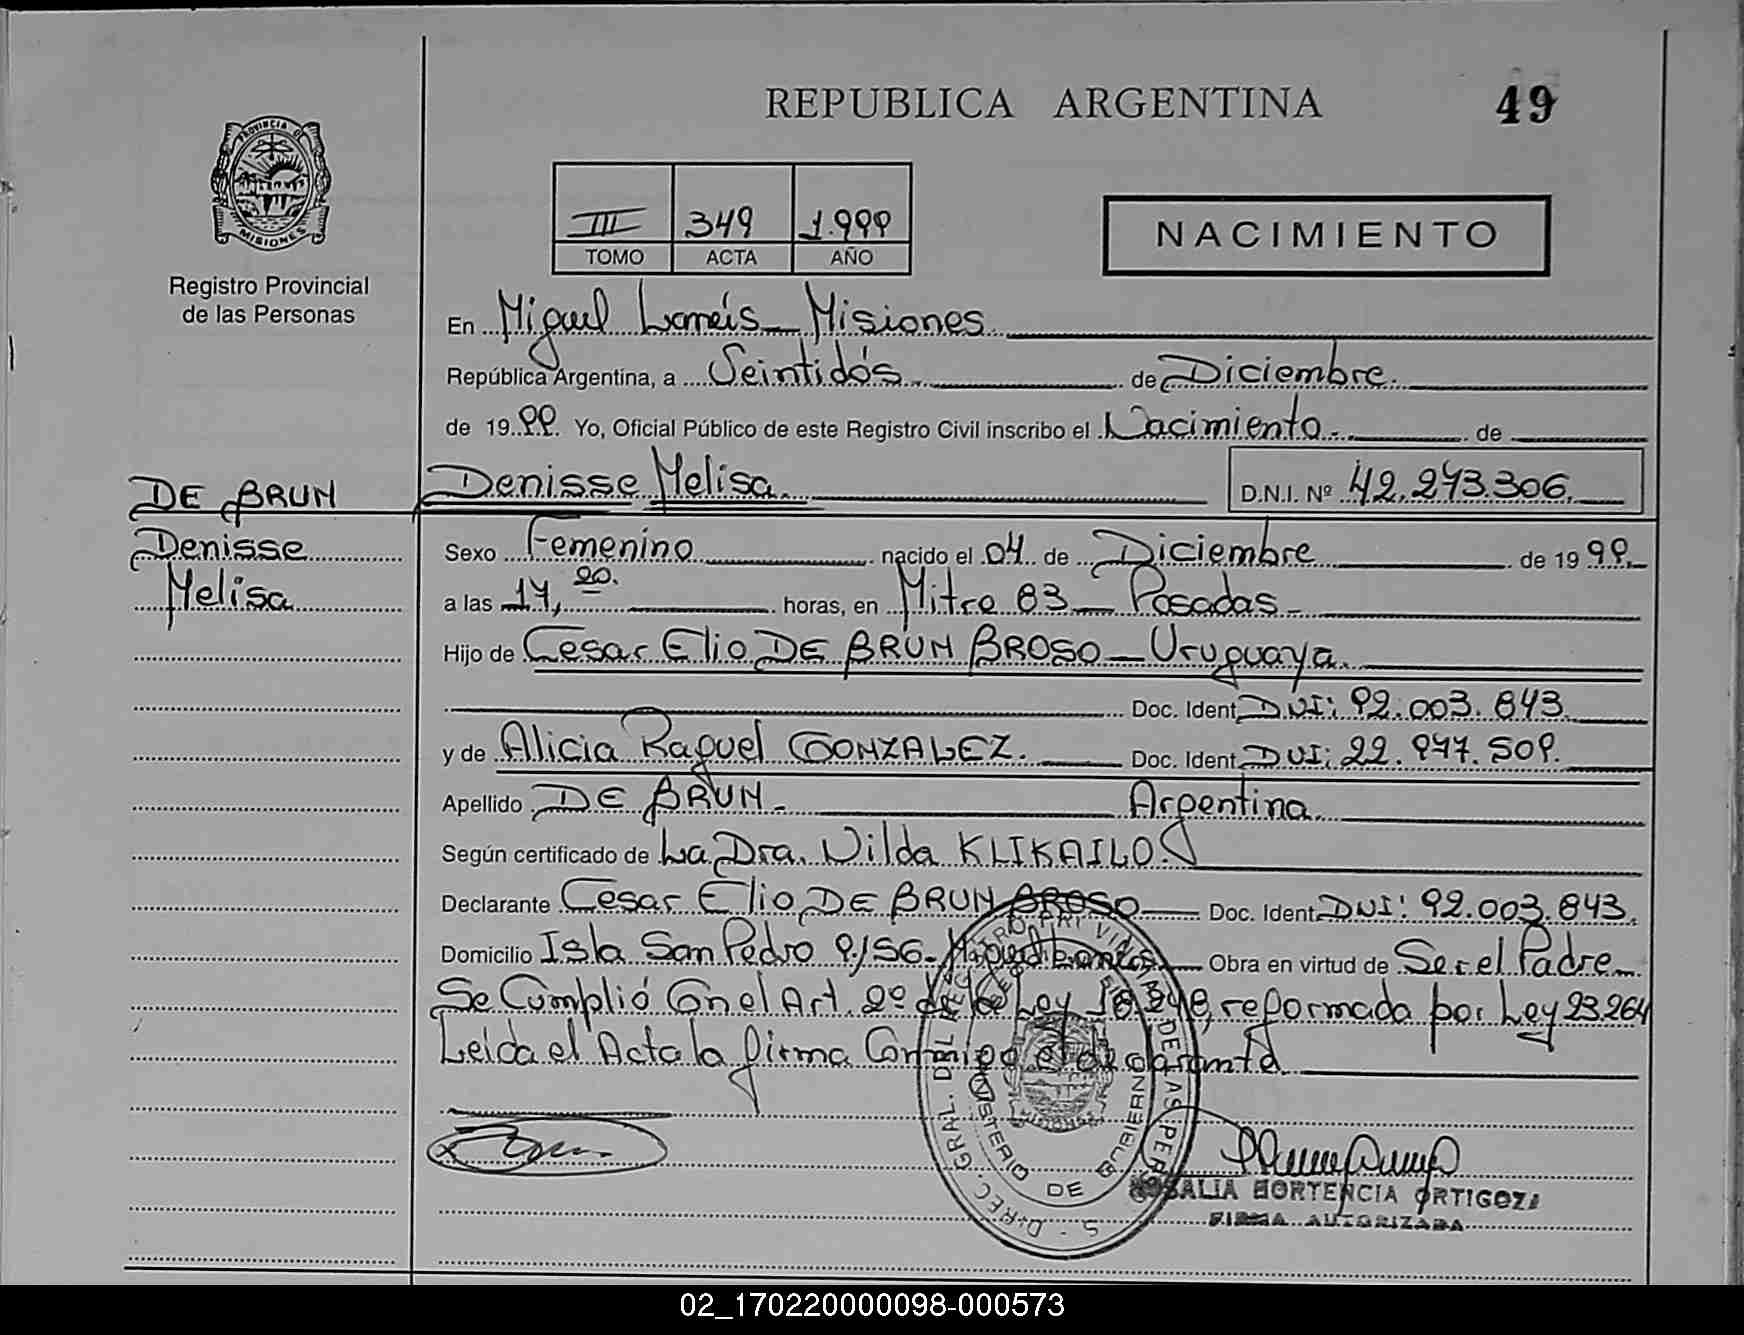 REPUBLICA ARGENTINA
49
PROVINCIA D
MISIONES
Registro Provincial
de las Personas
III 349 1.999
TOMO ACTA AÑO
NACIMIENTO
En Miguel Lanús Misiones
República Argentina, a Veintidós de Diciembre
de 1999. Yo, Oficial Público de este Registro Civil inscribo el Nacimiento de
DE BRUN
Denisse
Melisa
Denisse Melisa D.N.I. Nº 42.273.306
Sexo Femenino nacido el 04 de Diciembre de 1999
a las 17,20 horas, en Mitre 83 Posadas
Hijo de Cesar Elio DE BRUN BROSO Uruguaya
Doc. Ident DNI: 92.003.843
y de Alicia Raquel GONZALEZ. Doc. Ident DNI: 22.977.509.
Apellido DE BRUN Argentina
Según certificado de La Dra. Nilda KLIKAILO
Declarante Cesar Elio DE BRUN BROSO Doc. Ident DNI: 92.003.843
Domicilio Isla San Pedro Obra en virtud de Ser el Padre
Se Cumplió Con el Art. 2º de la Ley 18.248, reformada por Ley 23.264
Leída el Acta la firma Conmigo el declarante
ROSALIA HORTENCIA ORTIGOZA
FIRMA AUTORIZADA
02_170220000098-000573